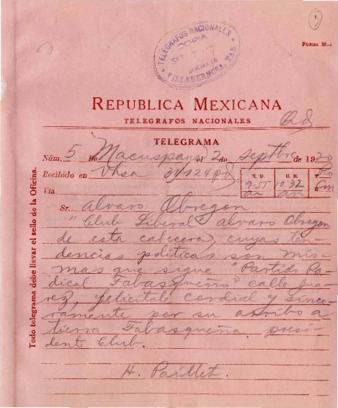 1
TELEGRAFOS NACIONALES
VILLAHERMOSA, TAB.
Forma M-
REPUBLICA MEXICANA
TELEGRAFOS NACIONALES
TELEGRAMA
Núm. 5 De Macuspana el 2 de septbre de 1920
Recibido en Vhsa
Vía
Sr. Alvaro Obregon
"Club Liberal Alvaro Obregon
de esta cabecera, cuyas ten-
dencias politicas son mis-
mas que sigue "Partido Ra-
dical Tabasqueño" calle Jua-
rez, felicitale cordial y since-
ramente por su arribo a
tierra Tabasqueña. presi-
dente Club.
H. Paillet.
Todo telegrama debe llevar el sello de la Oficina.